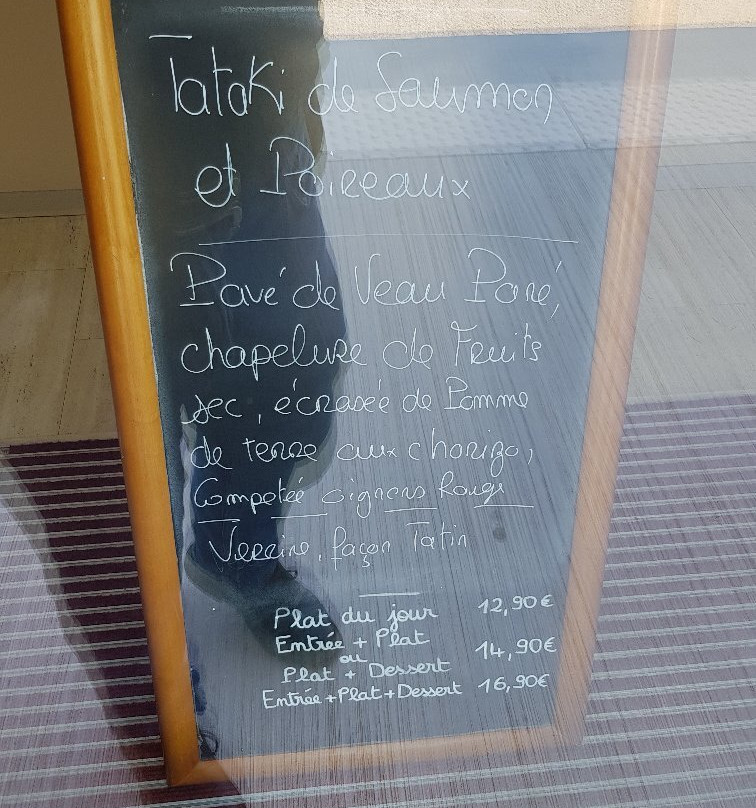 Tataki de Saumon
et Poireaux
Pavé de Veau Pané,
chapelure de Fruits
sec, écrasée de Pomme
de terre aux chorizo,
Compotée oignons Rouge
Verrine, façon Tatin
Plat du jour 12,90€
Entrée + Plat
ou 14,90€
Plat + Dessert
Entrée+Plat+Dessert 16,90€